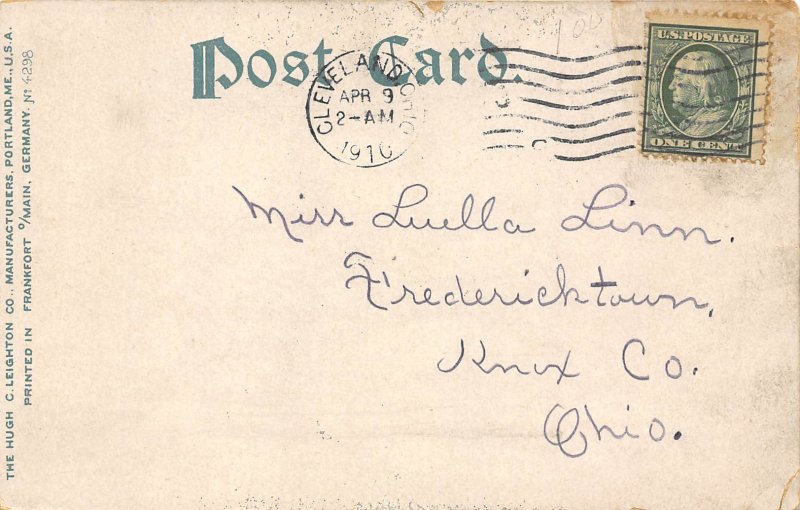 THE HUGH C. LEIGHTON CO., MANUFACTURERS, PORTLAND, ME., U.S.A.
PRINTED IN FRANKFORT O/MAIN, GERMANY. No 4298
Post Card.
100
CLEVELAND OHIO
APR 9
2-AM
1910
U.S. POSTAGE
ONE CENT
Miss Luella Linn.
Fredericktown,
Knox Co.
Ohio.